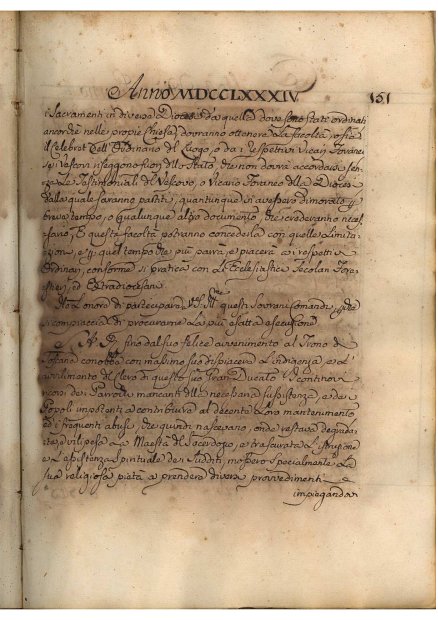 Anno MDCCLXXXIV 151
i Sacramenti in diversa Diocesi da quella dove sono stati ordinati
ancorchè nelle proprie chiese, dovranno ottenere La facoltà, o sia
il Celebret dell'Ordinario del Luogo, o da i respettivi Vicari Foranei
se i Vescovi risegono fuori dello Stato, che non dovrà accordarsi sen-
za Le Testimoniali del Vescovo, o Vicario Foraneo della Diocesi
dalla quale saranno partiti, quantunque vi avessero dimorato p
breve tempo, o qualunque altro documento, che crederanno neces-
sario, E questa facoltà potranno concederla con quelle Limita-
zioni, e p quel tempo che più parrà, e piacerà ai respettivi
Ordinari, conforme si pratica con gli Ecclesiastici Secolari Fora-
stieri, ed Extradiocesani
Ho L'onore di partecipare a V.S. Ill questi Sovrani Comandi
si compiaccia di procurarne La più esatta esecuzione
S. A. R. fino dal suo felice avvenimento al Trono di
Toscana conobbe con massimo suo dispiacere L'indigenza, e L'av-
vilimento del Clero di questo suo Gran Ducato I continovi
ricorsi dei Parrochi mancanti della necessaria sussistenza, e dei
Popoli impotenti a contribuire al decente Loro mantenimento
ed i frequenti abusi, che quindi nascevano, onde restava degrada-
ta, ed vilipesa La Maestà del Sacerdozio, e trascurata L'istruzione
e L'assistenza Spirituale dei Sudditi mossero specialmente La
sua religiosa pietà a prendere diversi provvedimenti e
impiegando